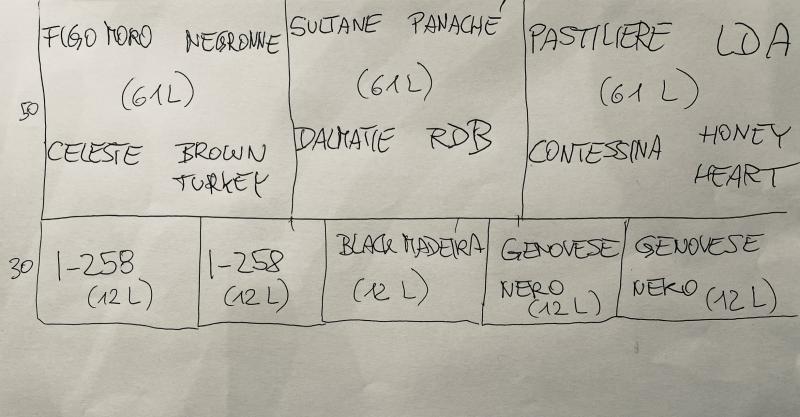 FIGO MORO NEGRONNE
(61L)
CELESTE BROWN
TURKEY
SULTANE PANACHÉ
(61L)
DALMATIE RDB
PASTILIERE LDA
(61 L)
CONTESSINA HONEY
HEART
50
30
I-258
(12 L)
I-258
(12 L)
BLACK MADEIRA
(12 L)
GENOVESE
NERO
(12 L)
GENOVESE
NERO (12 L)